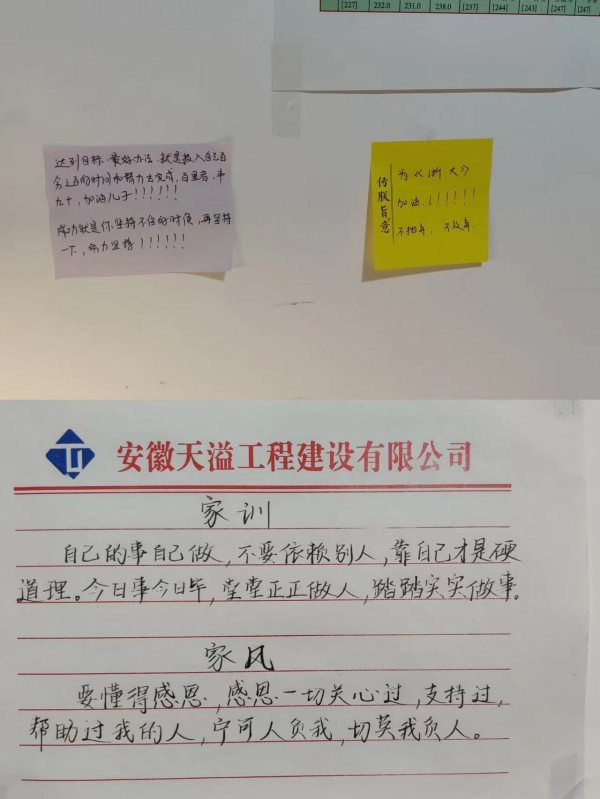 [227] 232.0 231.0 238.0 [237] [244] [243] [247] [247]
达到目标,最好办法,就是投入自己百
分之百的时间和努力去完成,百里者,半
九十,加油儿子!!!!!!
成功就是你坚持不住的时候,再坚持
一下,努力坚持!!!!!!
为《浙大》
加油!!!!!!!
不抛弃,不放弃.
安徽天溢工程建设有限公司
家训
自己的事自己做,不要依赖别人,靠自己才是硬
道理。今日事今日毕,堂堂正正做人,踏踏实实做事。
家风
要懂得感恩,感恩一切关心过,支持过,
帮助过我的人,宁可人负我,切莫我负人。